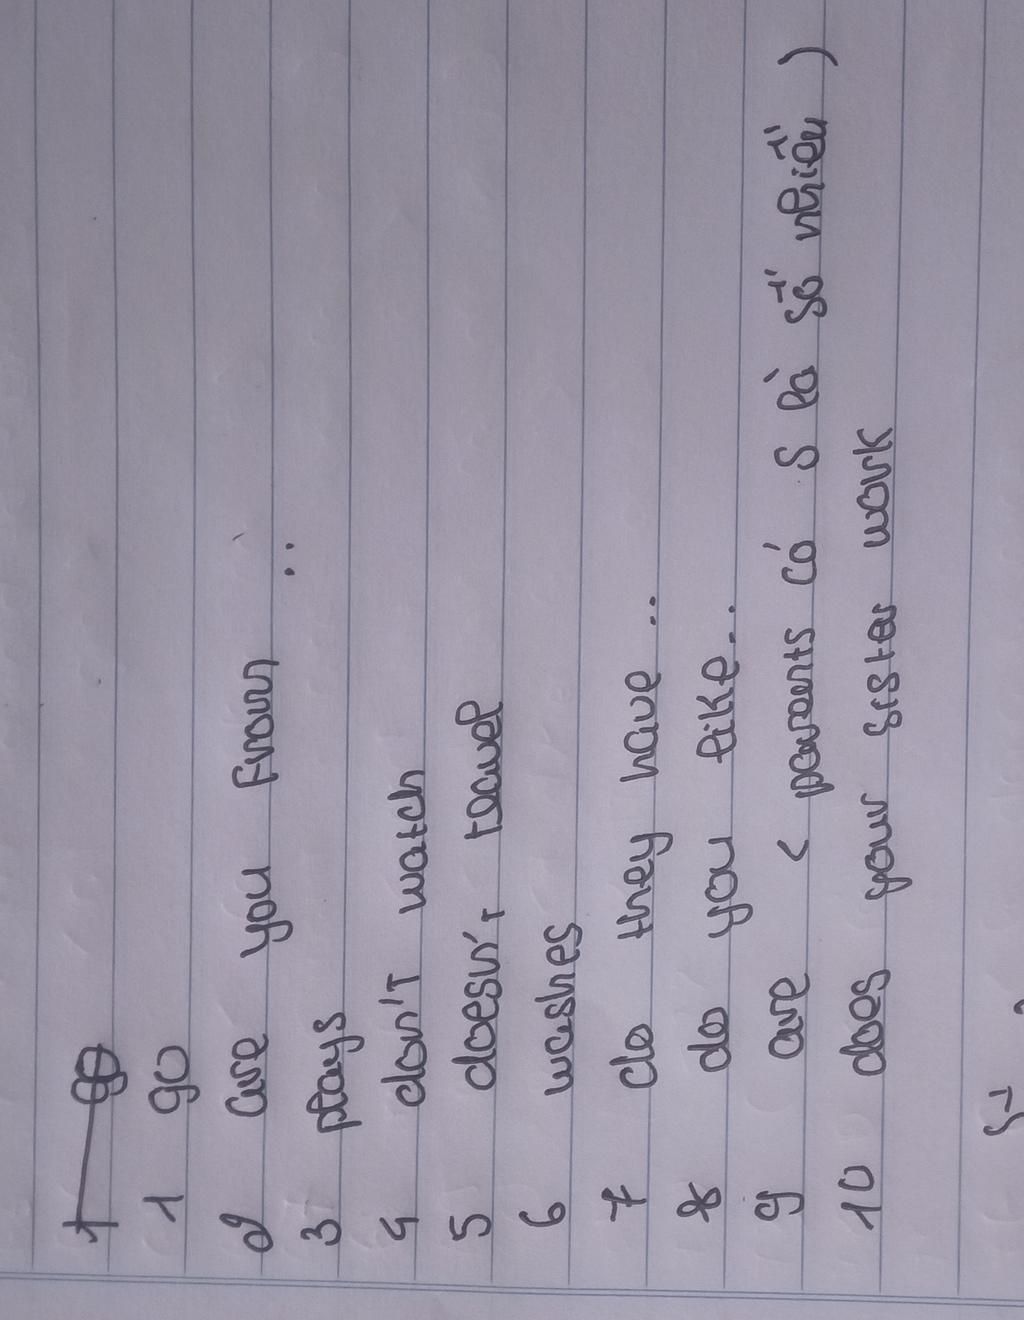 1 go
1 go
2 are you from ..
3 plays
4 don't watch
5 doesn't travel
6 washes
7 do they have ..
8 do you like ..
9 are < parents có s là số nhiều )
10 does your sister work